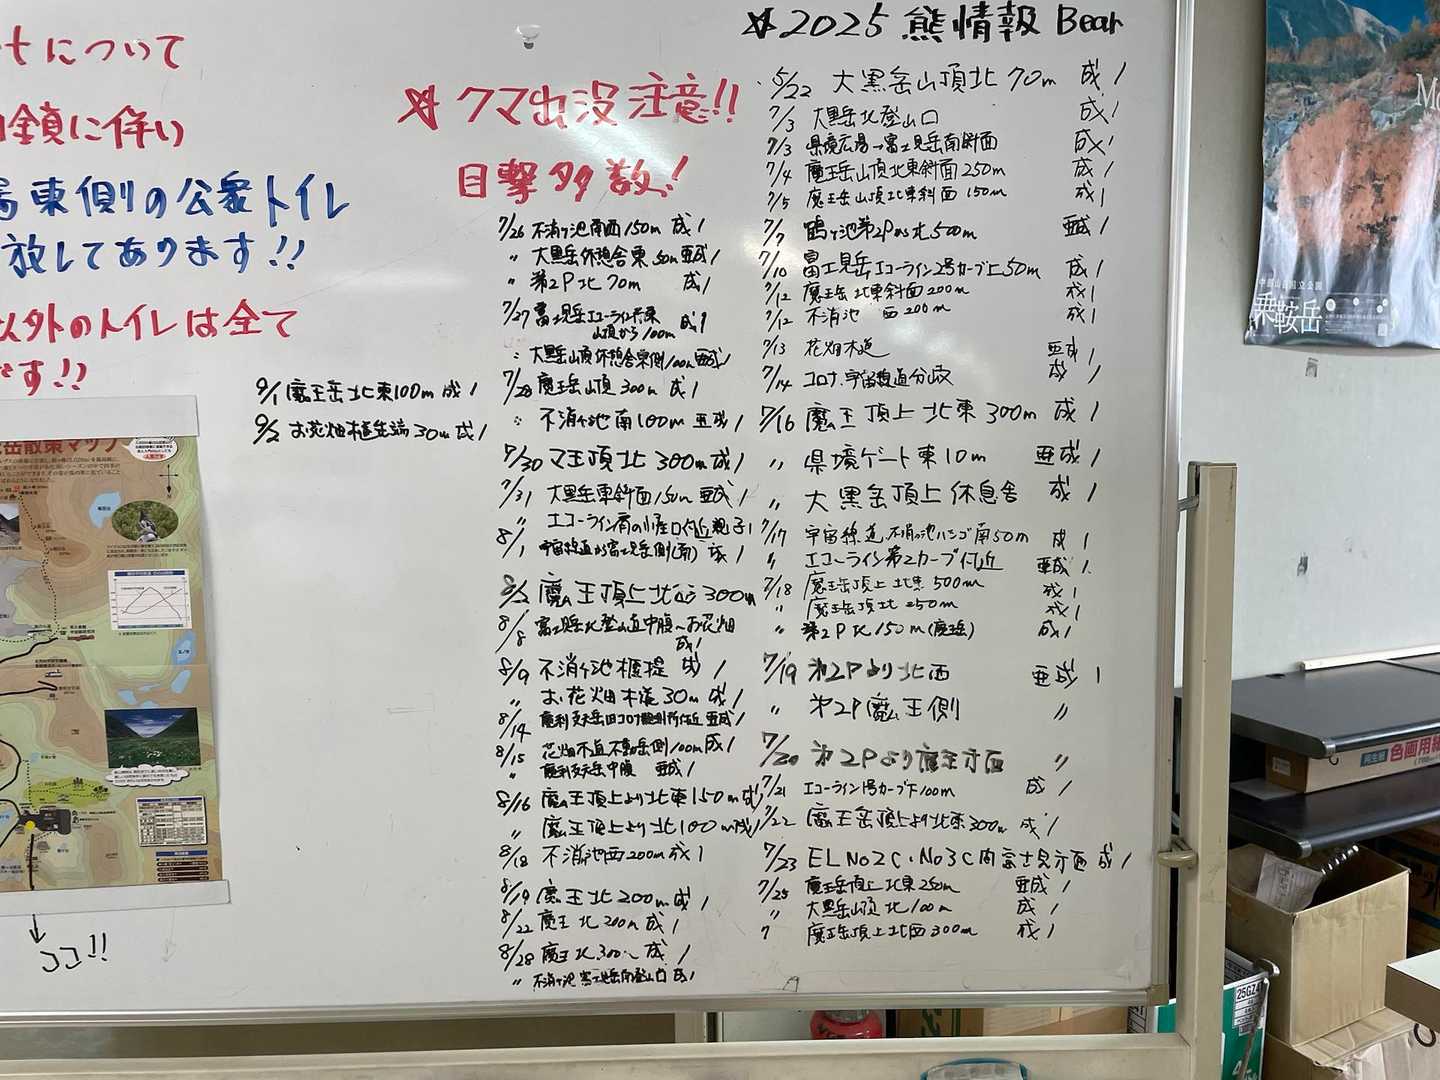 ☆2025 熊情報 Bear
5/22 大黒岳山頂北 70m 成 1
7/3 大黒岳北登山口 成 1
7/3 県境広場→富士見岳南斜面 成 1
7/4 魔王岳山頂北東斜面250m 成 1
7/5 魔王岳山頂北東斜面 150m 成 1
7/7 鶴ヶ池第2Pから北500m 亜成 1
7/10 富士見岳エコーライン2号カーブ上50m 成 1
7/12 魔王岳北東斜面200m 成 1
7/12 不消池 西200m 成 1
7/13 花畑木道 亜成 1
7/14 コロナ、宇宙線道分岐 成 1
7/16 魔王頂上北東300m 成 1
〃 県境ゲート東10m 亜成 1
〃 大黒岳頂上休息舎 成 1
7/17 宇宙線道 不消ヶ池ハシゴ南50m 成 1
〃 エコーライン第2カーブ付近 亜成 1
7/18 魔王岳頂上北東500m 成 1
〃 魔王岳頂北250m 成 1
〃 第2P北150m(魔王岳) 成 1
7/19 第2Pより北西 亜成 1
〃 第2P魔王側 〃
7/20 第2Pより魔王方面 〃
7/21 エコーライン1号カーブ下100m 成 1
7/22 魔王岳頂上より北東300m 成 1
7/23 EL No2C・No3C間富士見方面 成 1
7/25 魔王岳頂上北東250m 亜成 1
〃 大黒岳山頂北100m 成 1
〃 魔王岳頂上北西300m 成 1
☆クマ出没注意!!
目撃多数!
7/26 不消ヶ池南西150m 成 1
〃 大黒岳休憩舎東50m 亜成 1
〃 第2P北70m 成 1
7/27 富士見岳エコーライン
山頂から100m 成 1
〃 大黒岳山頂休憩舎東側100m 亜成 1
7/28 魔王岳山頂300m 成 1
〃 不消ヶ池南100m 亜成 1
7/30 マ王頂北300m 成 1
7/31 大黒岳東斜面150m 亜成 1
〃 エコーライン 親子 1
8/1 宇宙線道から富士見岳側(南) 成 1
8/2 魔王頂上北 300m
8/8 富士見岳北登山道中腹〜お花畑
成 1
8/9 不消ヶ池堰堤 成 1
〃 お花畑木道30m 成 1
8/14 摩利支天岳旧コロナ観測所付近 亜成 1
8/15 花畑木道不動岳側100m 成 1
〃 摩利支天岳中腹 亜成 1
8/16 魔王頂上より北東150m 成 1
〃 魔王頂上より北100m 成 1
8/18 不消池西200m 成 1
8/19 魔王北200m 成 1
8/22 魔王 北200m 成 1
8/28 魔王北300m 成 1
〃 不消ヶ池 富士見岳南登山口 成 1
9/1 魔王岳北東100m 成 1
9/2 お花畑植生端30m 成 1
について
鎖に伴い
東側の公衆トイレ
放してあります!!
以外のトイレは全て
です!!
岳散策マップ
ココ!!
中部山岳国立公園
乗鞍岳
再生紙 色画用紙
25GZ4